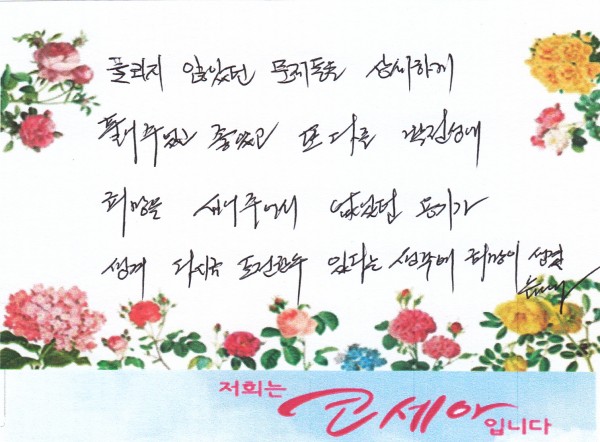 풀리지 않았던 문제들을 상세하게
풀어주셨고 좋았고 또 다른 각진성내
희망을 심어주어서 없었던 용기가
생겨 다시금 도전할수 있다는 생각에 희망이 생겼
습니다
저희는 고세아 입니다